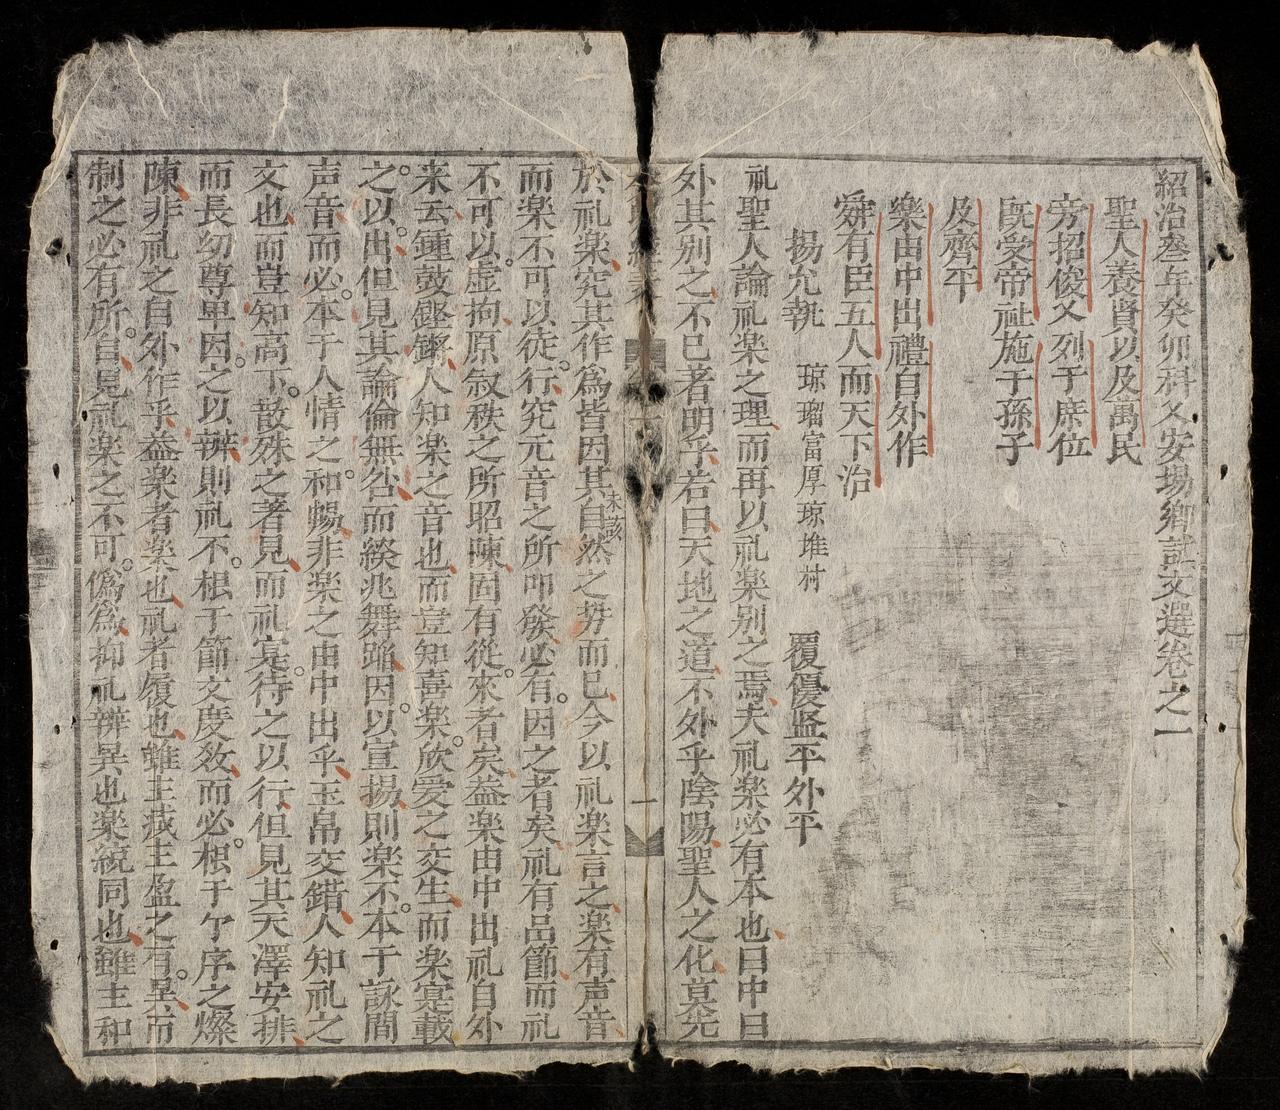 紹治叄年癸卯科乂安場鄉試文選卷之一
聖人養賢以及萬民
旁招俊乂列于庶位
旣受帝祉施于孫子
及齊平
樂由中出禮自外作
舜有臣五人而天下治
揚允執 琼瑠富厚琼堆村 覆優竖平外平
礼聖人論礼楽之理而再以礼楽别之焉夫礼楽必有本也曰中曰
外其别之不已者明乎若曰天地之道不外乎陰陽聖人之化莫先
於礼楽究其作爲皆因其自然之 而已今以礼楽言之楽有声音
而楽不可以徒行究元音之所叩發必有因之者矣礼有品節而礼
不可以虚拘原叙秩之所昭陳固有從來者矣益楽由中出礼自外
来云鍾鼓鏗鏘人知楽之音也而豈知喜楽欣爱之交生而楽寔載
之以出但見其論倫無 而綴兆舞蹈因以宣揚則楽不本于詠間
声音而必本于人情之和暢非楽之由中出乎玉帛交錯人知礼之
文也而豈知高下散殊之著見而礼寔待之以行但見其天澤安排
而長幼尊卑因之以辨則礼不根于節文度数而必根于 序之燦
陳非礼之自外作乎益楽者楽也礼者履也雖主减主盈之有異而
制之必有所自見礼楽之不可僞爲抑礼辨異也楽統同也雖主和